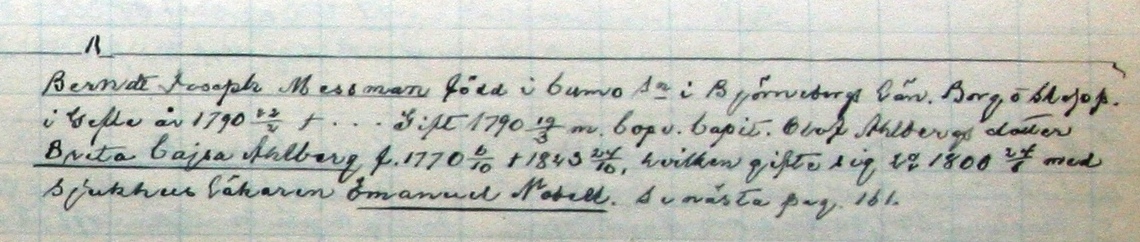 Berndt Joseph Messman född i Cumo Sn i Björneborgs län. Borg o Skepp.
i Gefle år 1790 22/2 + . . . Gift 1790 19/3 m. Copv. Capit. Olof Ahlbergs dotter
Brita Cajsa Ahlberg f. 1770 6/10 + 1823 24/10, hvilken gifte sig 2o 1800 med
Sjukhus läkaren Emanuel Nobell. Se nästa pag. 161.